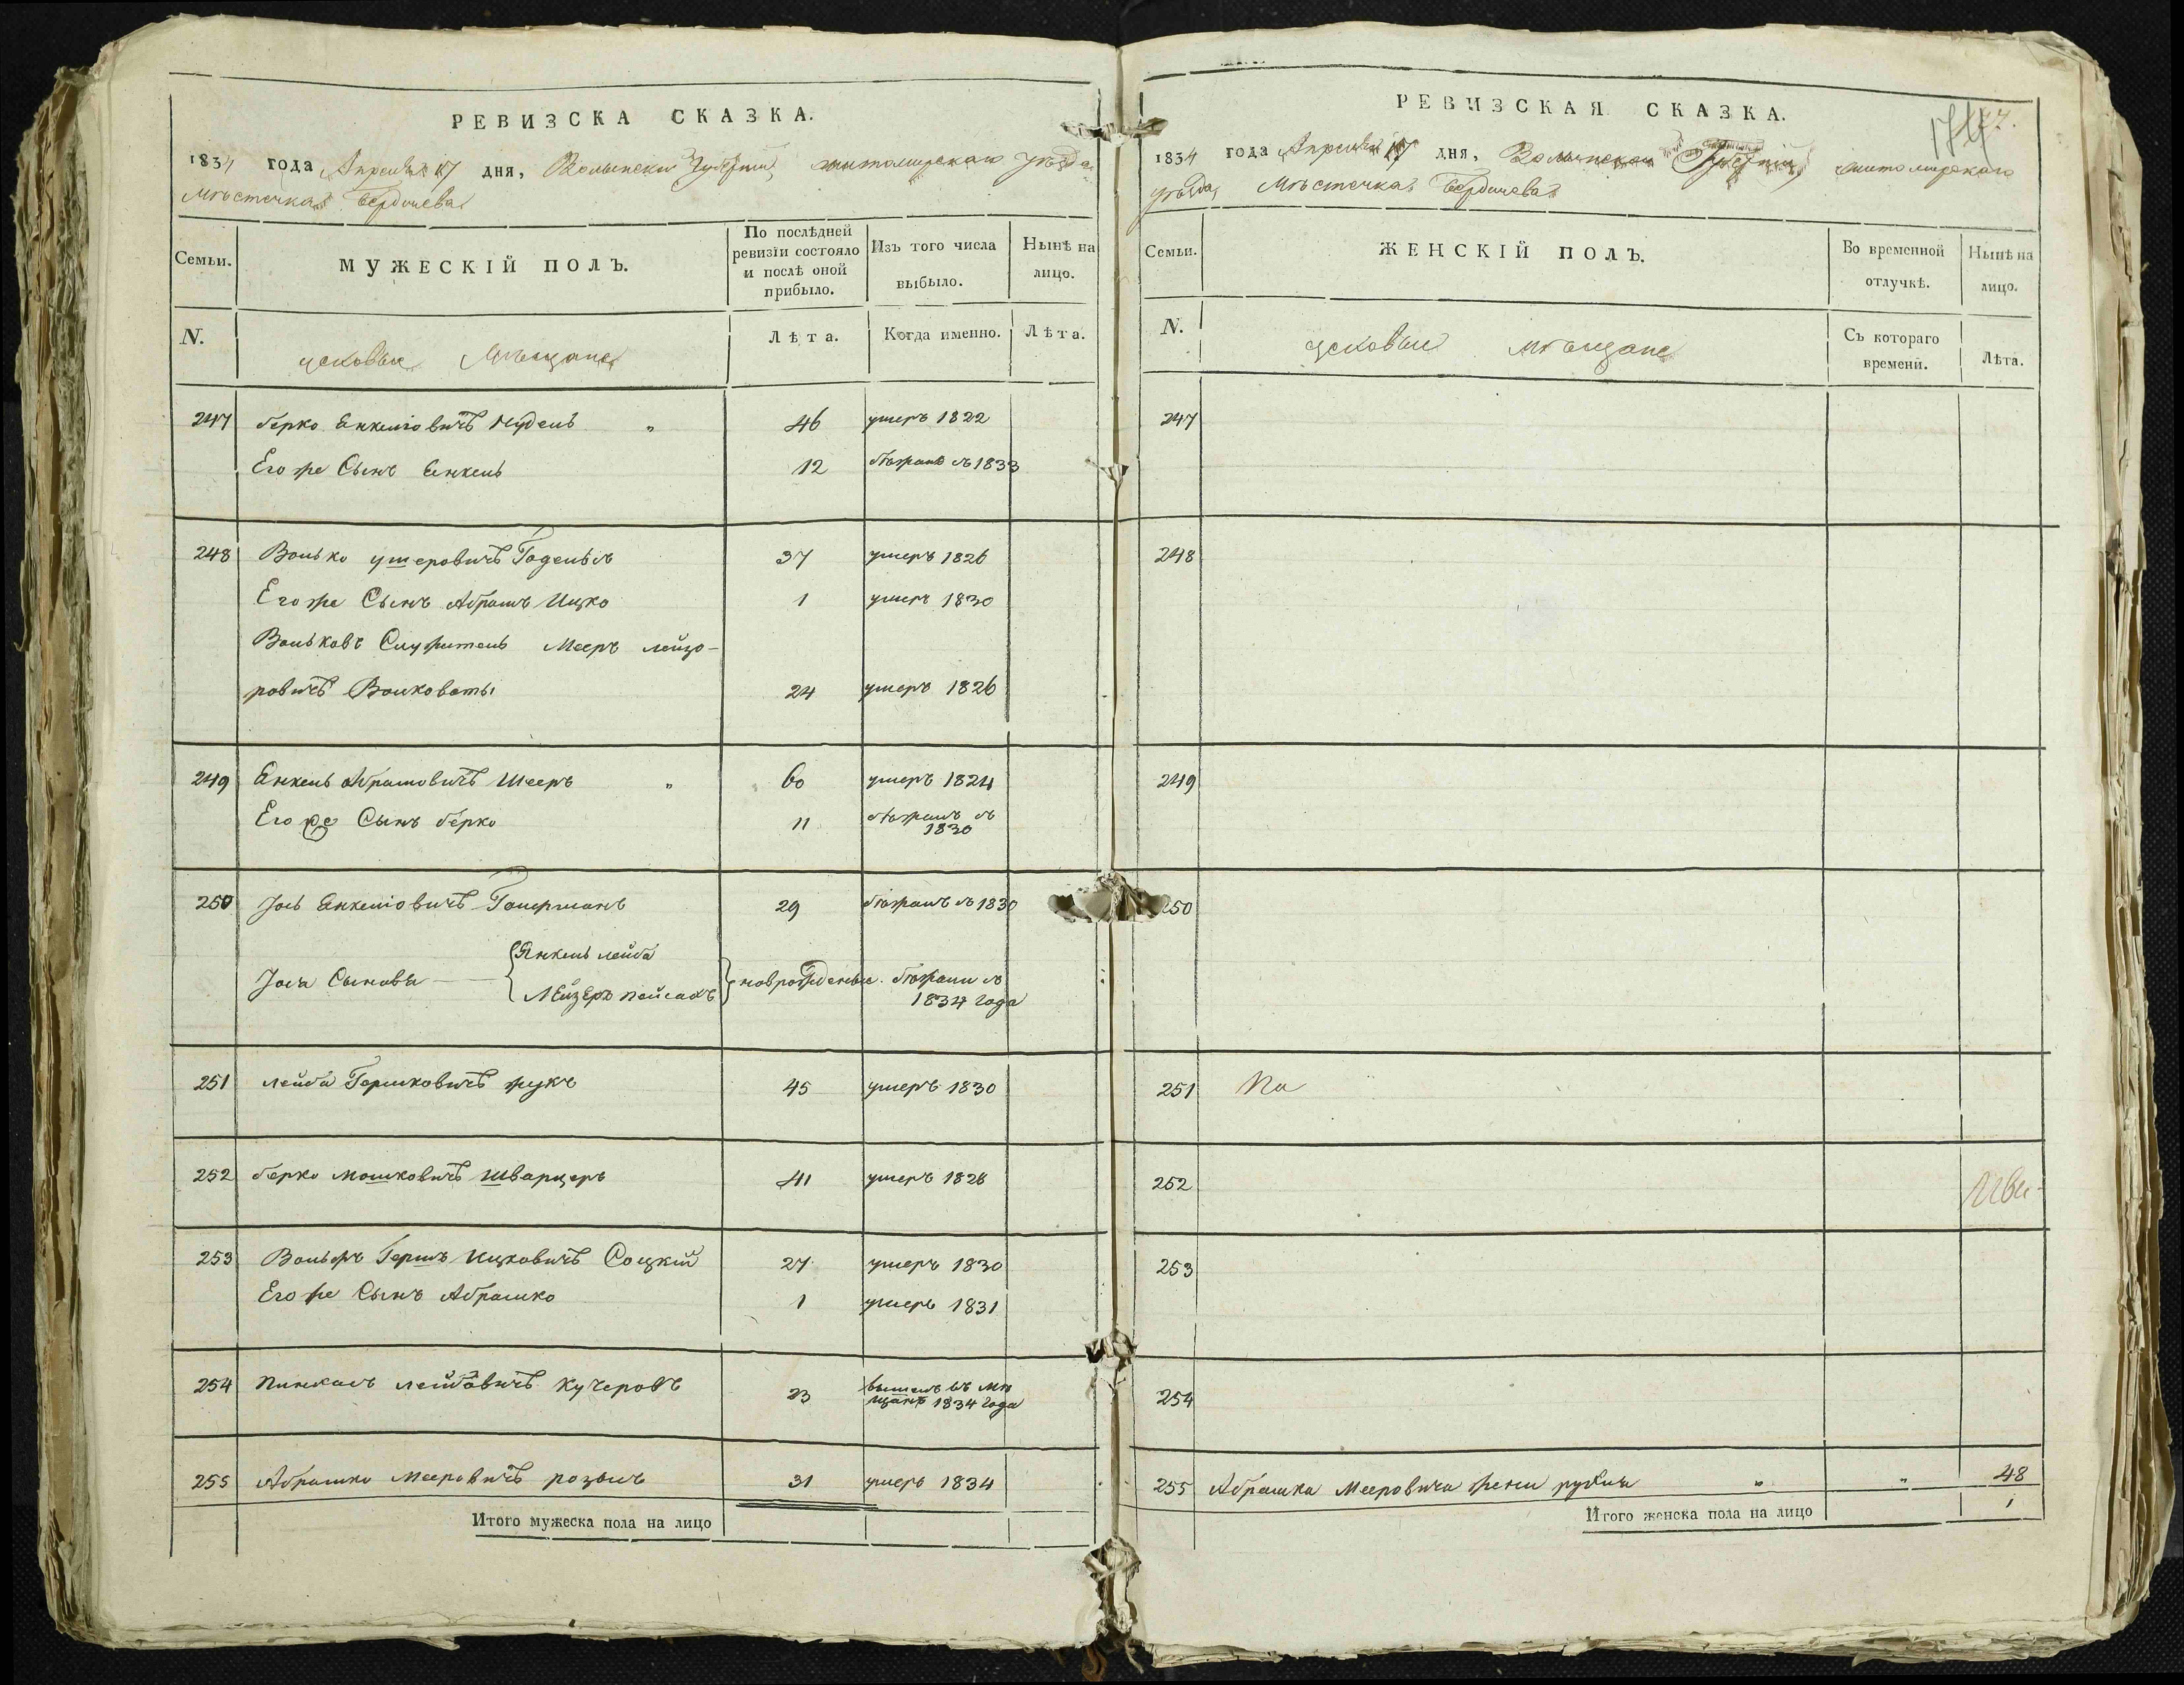 РЕВИЗСКА СКАЗКА.
1834 года Апреля 17 дня, Волынской Губерніи, житомирскаго уѣзда
Мѣстечка Бердичева
Семьи.
МУЖЕСКІЙ ПОЛЪ.
По послѣдней ревизіи состояло и послѣ оной прибыло.
Изъ того числа выбыло.
Нынѣ на лицо.
N.
цеховые Мѣщане
Лѣта.
Когда именно.
Лѣта.
247 берко Енкеліовичъ Нудель " 46 умеръ 1822
Его же Сынъ Енкель 12 бѣжалъ въ 1833
248 Волько ушеровичъ 37 умеръ 1826
Его же Сынъ Абрамъ Ицко 1 умеръ 1830
Вольковъ Служитель Мееръ лейзо-
ровичъ Волковаты 24 умеръ 1826
249 Енкель Абрамовичъ Шееръ " 60 умеръ 1824
Его же Сынъ берко 11 бѣжалъ въ
1830
250 Іось Енкеліовичъ 29 бѣжалъ въ 1830
Янкель лейба
Іося Сыновья новрожденые бѣжали въ
Лейзеръ пейсахъ 1834 года
251 лейба Гершковичъ жукъ 45 умеръ 1830
252 берко мошковичъ Шварцеръ 41 умеръ 1828
253 Вольфъ Гершъ Ицковичъ Соцкій 27 умеръ 1830
Его же Сынъ Абрашко 1 умеръ 1831
254 пинхасъ лейбовичъ кучеровъ 23 вышелъ въ мѣ
щанѣ 1834 года
255 Абрашко Мееровичъ розынъ 31 умеръ 1834
Итого мужеска пола на лицо
РЕВИЗСКАЯ СКАЗКА.
1834 года Апреля 17 дня, Волынской Губерніи, житомирскаго
уѣзда, Мѣстечка Бердичева
Семьи.
ЖЕНСКІЙ ПОЛЪ.
Во временной отлучкѣ.
Нынѣ на лицо.
N.
цеховые мѣщане
Съ котораго времени.
Лѣта.
247
248
249
250
251
252
253
254
255 Абрашка Мееровича жена " " 48
Итого женска пола на лицо 1